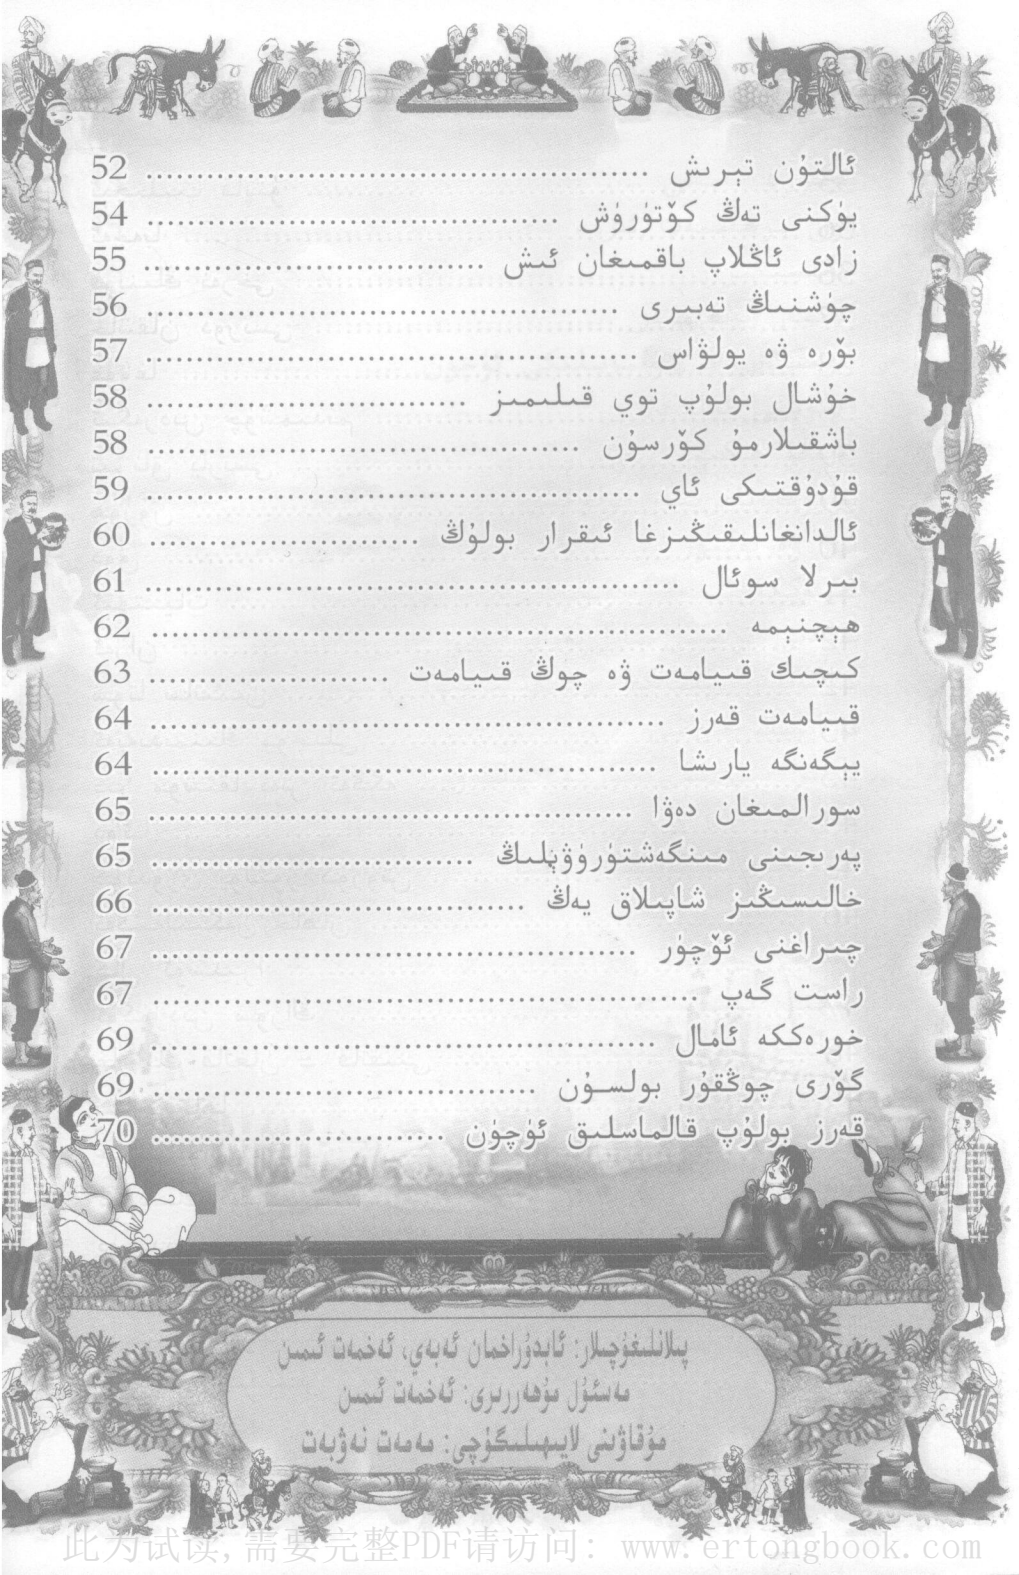 ئالتۇن تېرىش ........ 52
يۈكنى تەڭ كۆتۈرۈش ........ 54
زادى ئاڭلاپ باقمىغان ئىش ........ 55
چۈشنىڭ تەبىرى ........ 56
بۆرە ۋە يولۋاس ........ 57
خۇشال بولۇپ توي قىلىمىز ........ 58
باشقىلارمۇ كۆرسۇن ........ 58
قۇدۇقتىكى ئاي ........ 59
ئالدانغانلىقىڭىزغا ئىقرار بولۇڭ ........ 60
بىرلا سوئال ........ 61
ھېچنېمە ........ 62
كىچىك قىيامەت ۋە چوڭ قىيامەت ........ 63
قىيامەت قەرز ........ 64
يېگەنگە يارىشا ........ 64
سورالمىغان دەۋا ........ 65
پەرىجىنى مىنگەشتۈرۈۋېلىڭ ........ 65
خالىسىڭىز شاپىلاق يەڭ ........ 66
چىراغنى ئۆچۈر ........ 67
راست گەپ ........ 67
خورەككە ئامال ........ 69
گۆرى چوڭقۇر بولسۇن ........ 69
قەرز بولۇپ قالماسلىق ئۈچۈن ........ 70
پىلانلىغۇچىلار: ئابدۇراخمان ئەبەي، ئەخمەت ئىمىن
مەسئۇل مۇھەررىرى: ئەخمەت ئىمىن
مۇقاۋىنى لايىھىلىگۈچى: مەمەت نەۋبەت
此为试读,需要完整PDF请访问: www.ertongbook.com